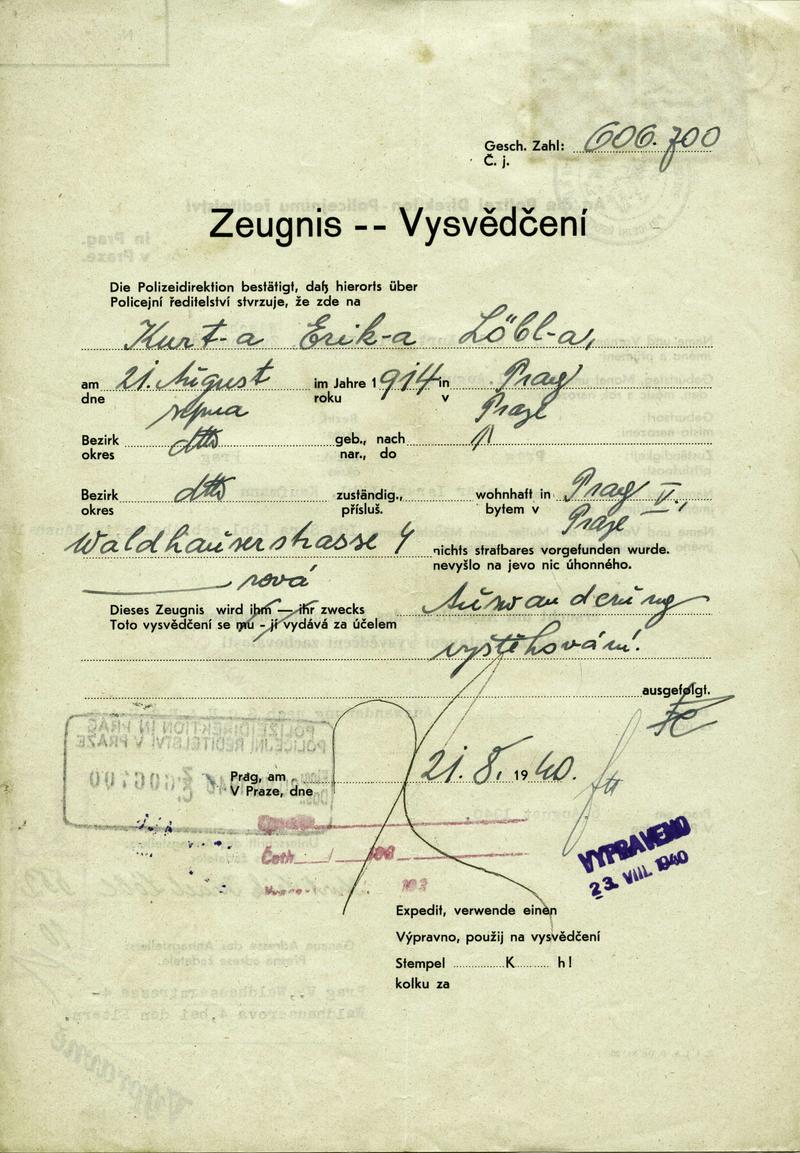 Gesch. Zahl: 606.700
Č. j.
Zeugnis -- Vysvědčení
Die Polizeidirektion bestätigt, daß hierorts über
Policejní ředitelství stvrzuje, že zde na
Kurt-a Erik-a Löbl-a,
am 21. August im Jahre 1914 in Prag
dne srpna roku v Praze
Bezirk dtto geb., nach
okres nar., do
Bezirk dtto zuständig., wohnhaft in Prag V.,
okres přísluš. bytem v Praze
Waldhauserstrasse 4 nichts strafbares vorgefunden wurde.
rová nevyšlo na jevo nic úhonného.
Dieses Zeugnis wird ihm — ihr zwecks Auswanderung
Toto vysvědčení se mu - jí vydává za účelem
vystěhování.
ausgefolgt.
Prag, am 21. 8. 1940.
V Praze, dne
Opsal
Četl 193
193
VYPRAVENO
23. VIII. 1940
Expedit, verwende einen
Výpravno, použij na vysvědčení
Stempel K h!
kolku za